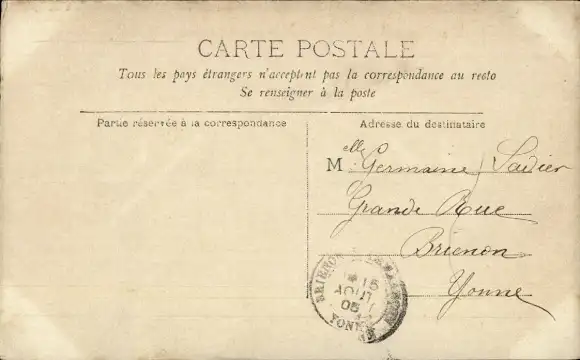 CARTE POSTALE
Tous les pays étrangers n'acceptent pas la correspondance au recto
Se renseigner à la poste
Partie réservée à la correspondance
Adresse du destinataire
Melle Germaine Sadier
Grande Rue
Brienon
Yonne
BRIENON
15
AOUT
05
YONNE